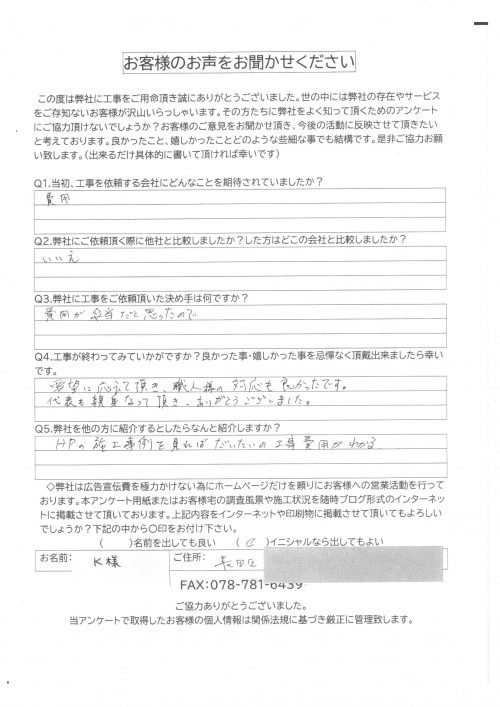 お客様のお声をお聞かせください
この度は弊社に工事をご用命頂き誠にありがとうございました。世の中には弊社の存在やサービス
をご存知ないお客様が沢山いらっしゃいます。その方たちに弊社をよく知って頂くためのアンケート
にご協力頂けないでしょうか？お客様のご意見をお聞かせ頂き、今後の活動に反映させて頂きたい
と考えております。良かったこと、嬉しかったことどのような些細な事でも結構です。是非ご協力お願
い致します。（出来るだけ具体的に書いて頂ければ幸いです）
Q1.当初、工事を依頼する会社にどんなことを期待されていましたか？
費用
Q2.弊社にご依頼頂く際に他社と比較しましたか？した方はどこの会社と比較しましたか？
いいえ
Q3.弊社に工事をご依頼頂いた決め手は何ですか？
費用が妥当だと思ったので
Q4.工事が終わってみていかがですか？良かった事・嬉しかった事を忌憚なく頂戴出来ましたら幸い
です。
要望に応えて頂き、職人様の対応も良かったです。
代表も親身なって頂き、ありがとうございました。
Q5.弊社を他の方に紹介するとしたらなんと紹介しますか？
HPの施工事例を見ればだいたいの工事費用がわかる
◇弊社は広告宣伝費を極力かけない為にホームページだけを頼りにお客様への営業活動を行って
おります。本アンケート用紙またはお客様宅の調査風景や施工状況を随時ブログ形式のインターネッ
トに掲載させて頂いております。上記内容をインターネットや印刷物に掲載させて頂いてもよろしい
でしょうか？下記の中から〇印をお付け下さい。
（　　）名前を出しても良い　（　　）イニシャルなら出してもよい
お名前：　K様　ご住所：　長田区
FAX:078-781-6439
ご協力ありがとうございました。
当アンケートで取得したお客様の個人情報は関係法規に基づき厳正に管理致します。